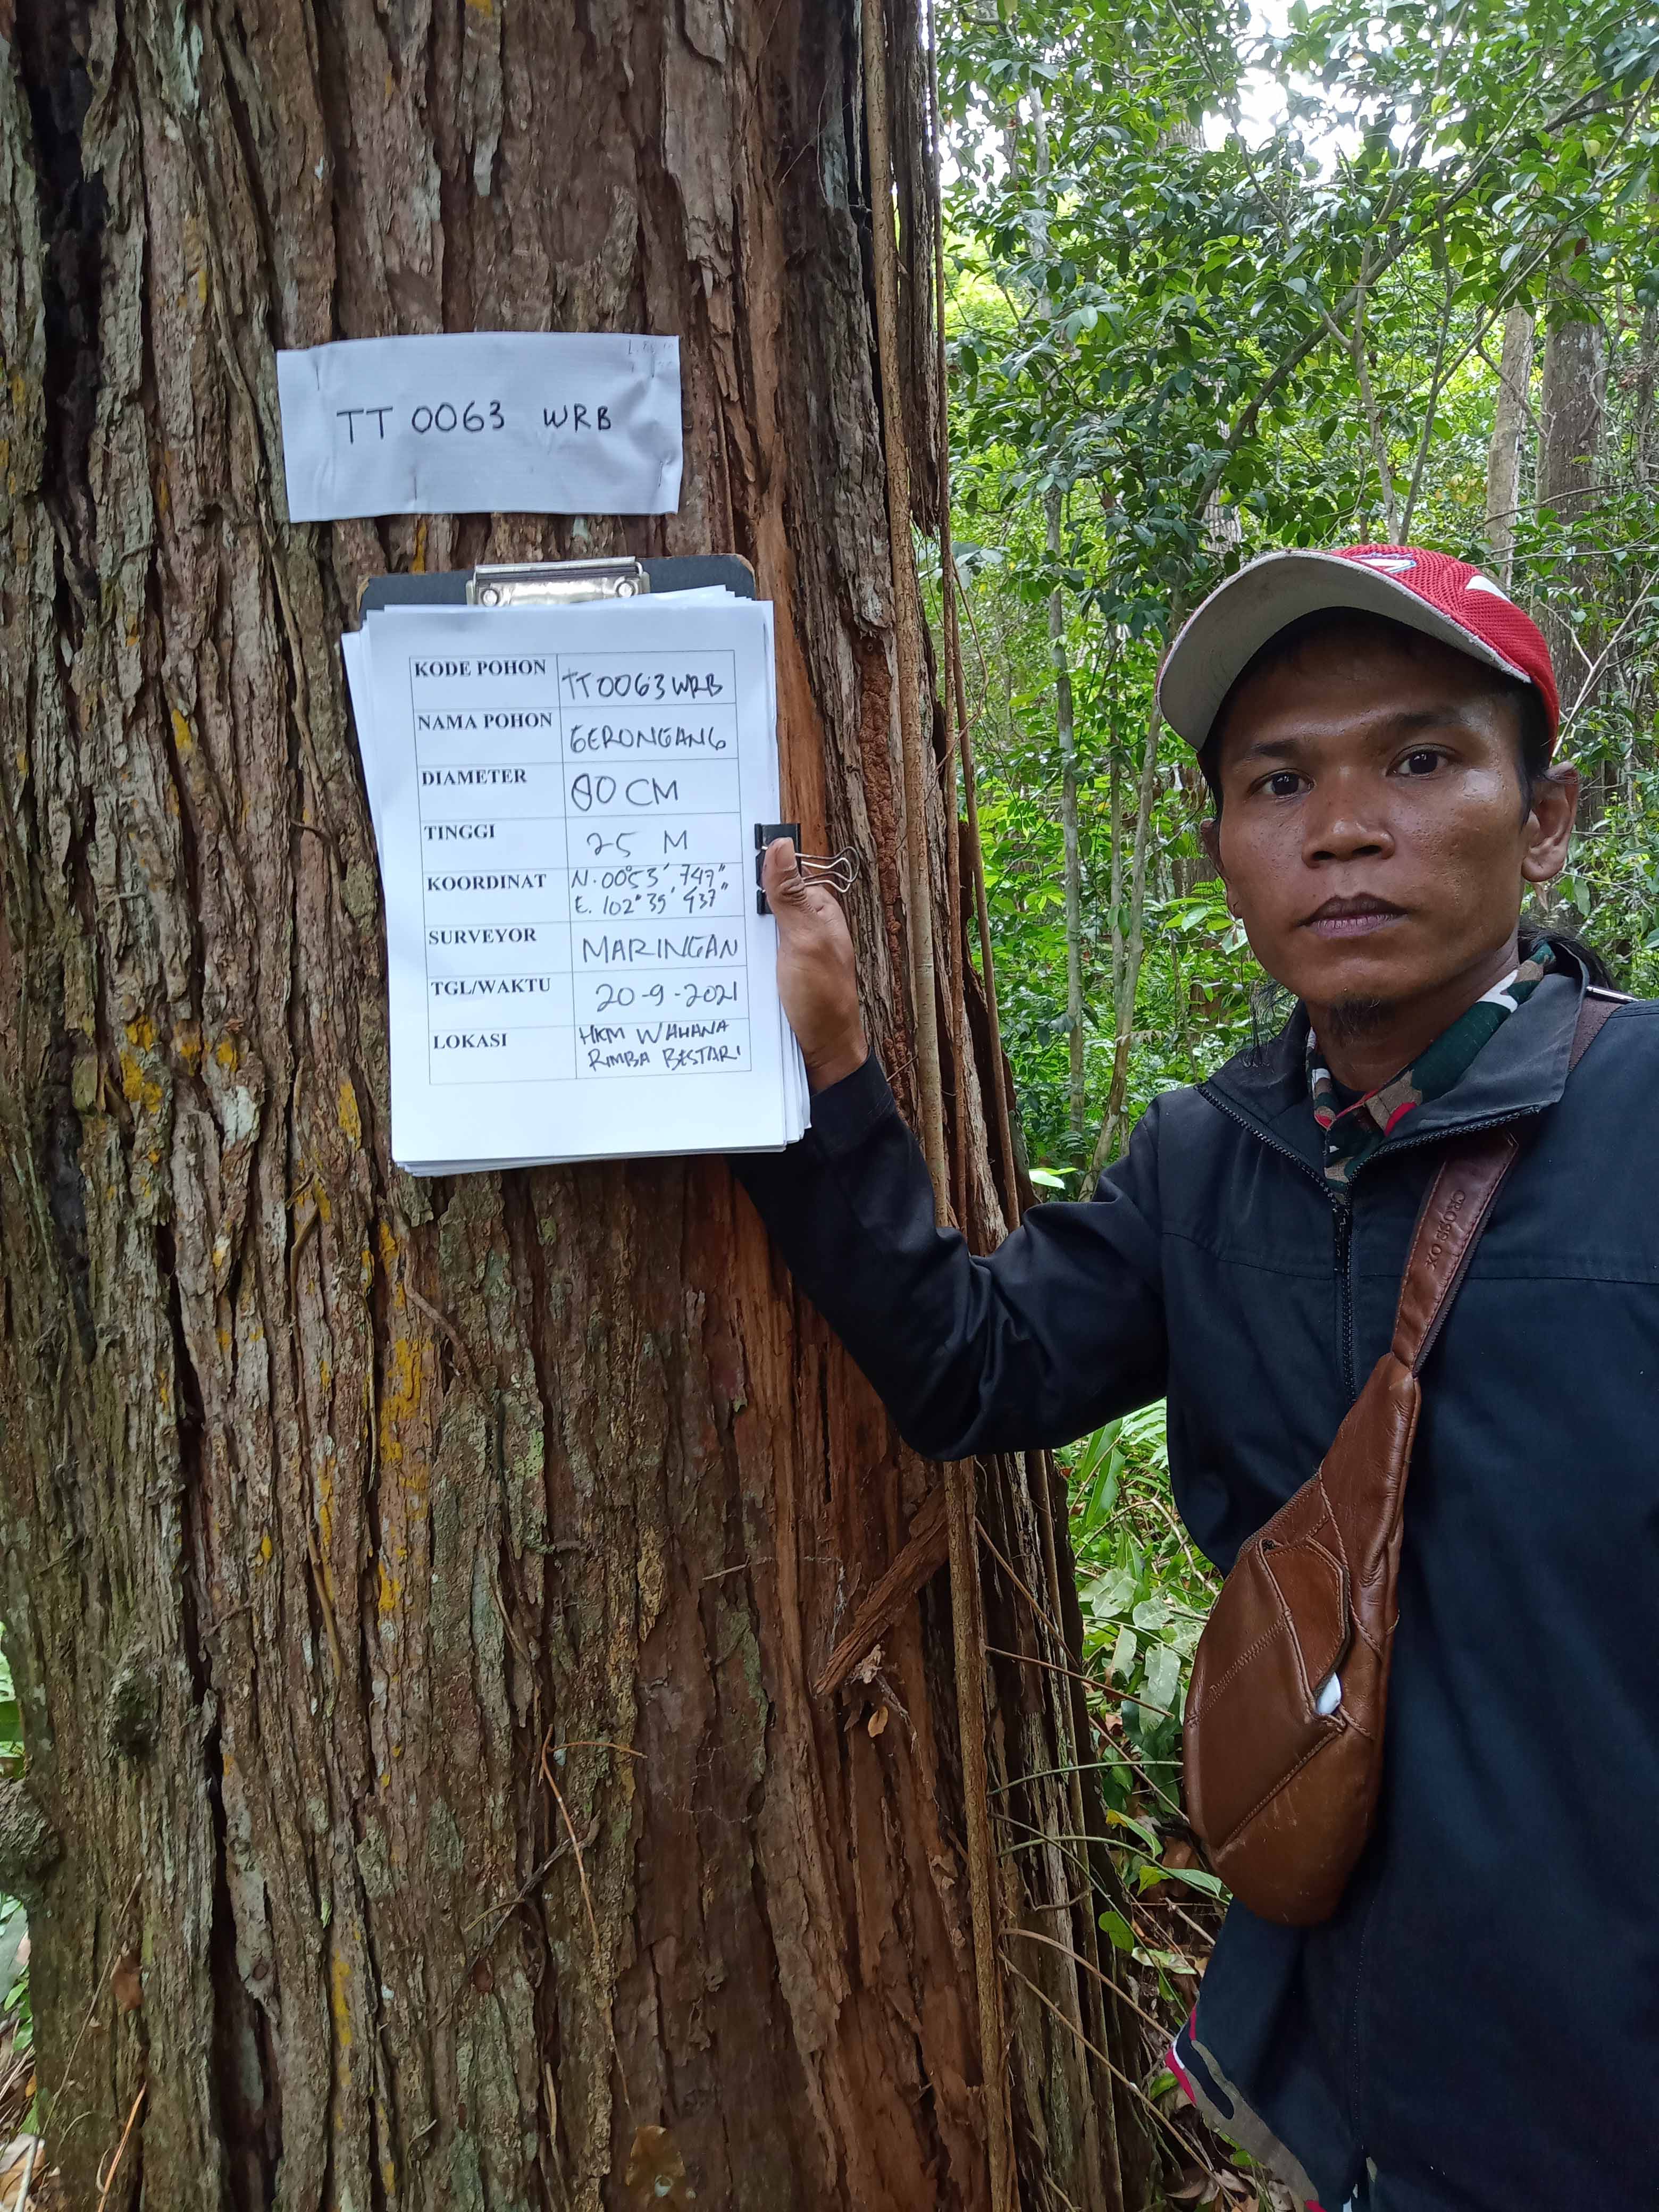 TT 0063 WRB
KODE POHON TT0063WRB
NAMA POHON GERONGANG
DIAMETER 80 CM
TINGGI 25 M
KOORDINAT N. 00°53' 747"
E. 102°39' 937"
SURVEYOR MARINGAN
TGL/WAKTU 20-9-2021
LOKASI HKM WAHANA
RIMBA BESTARI
CROSS OX